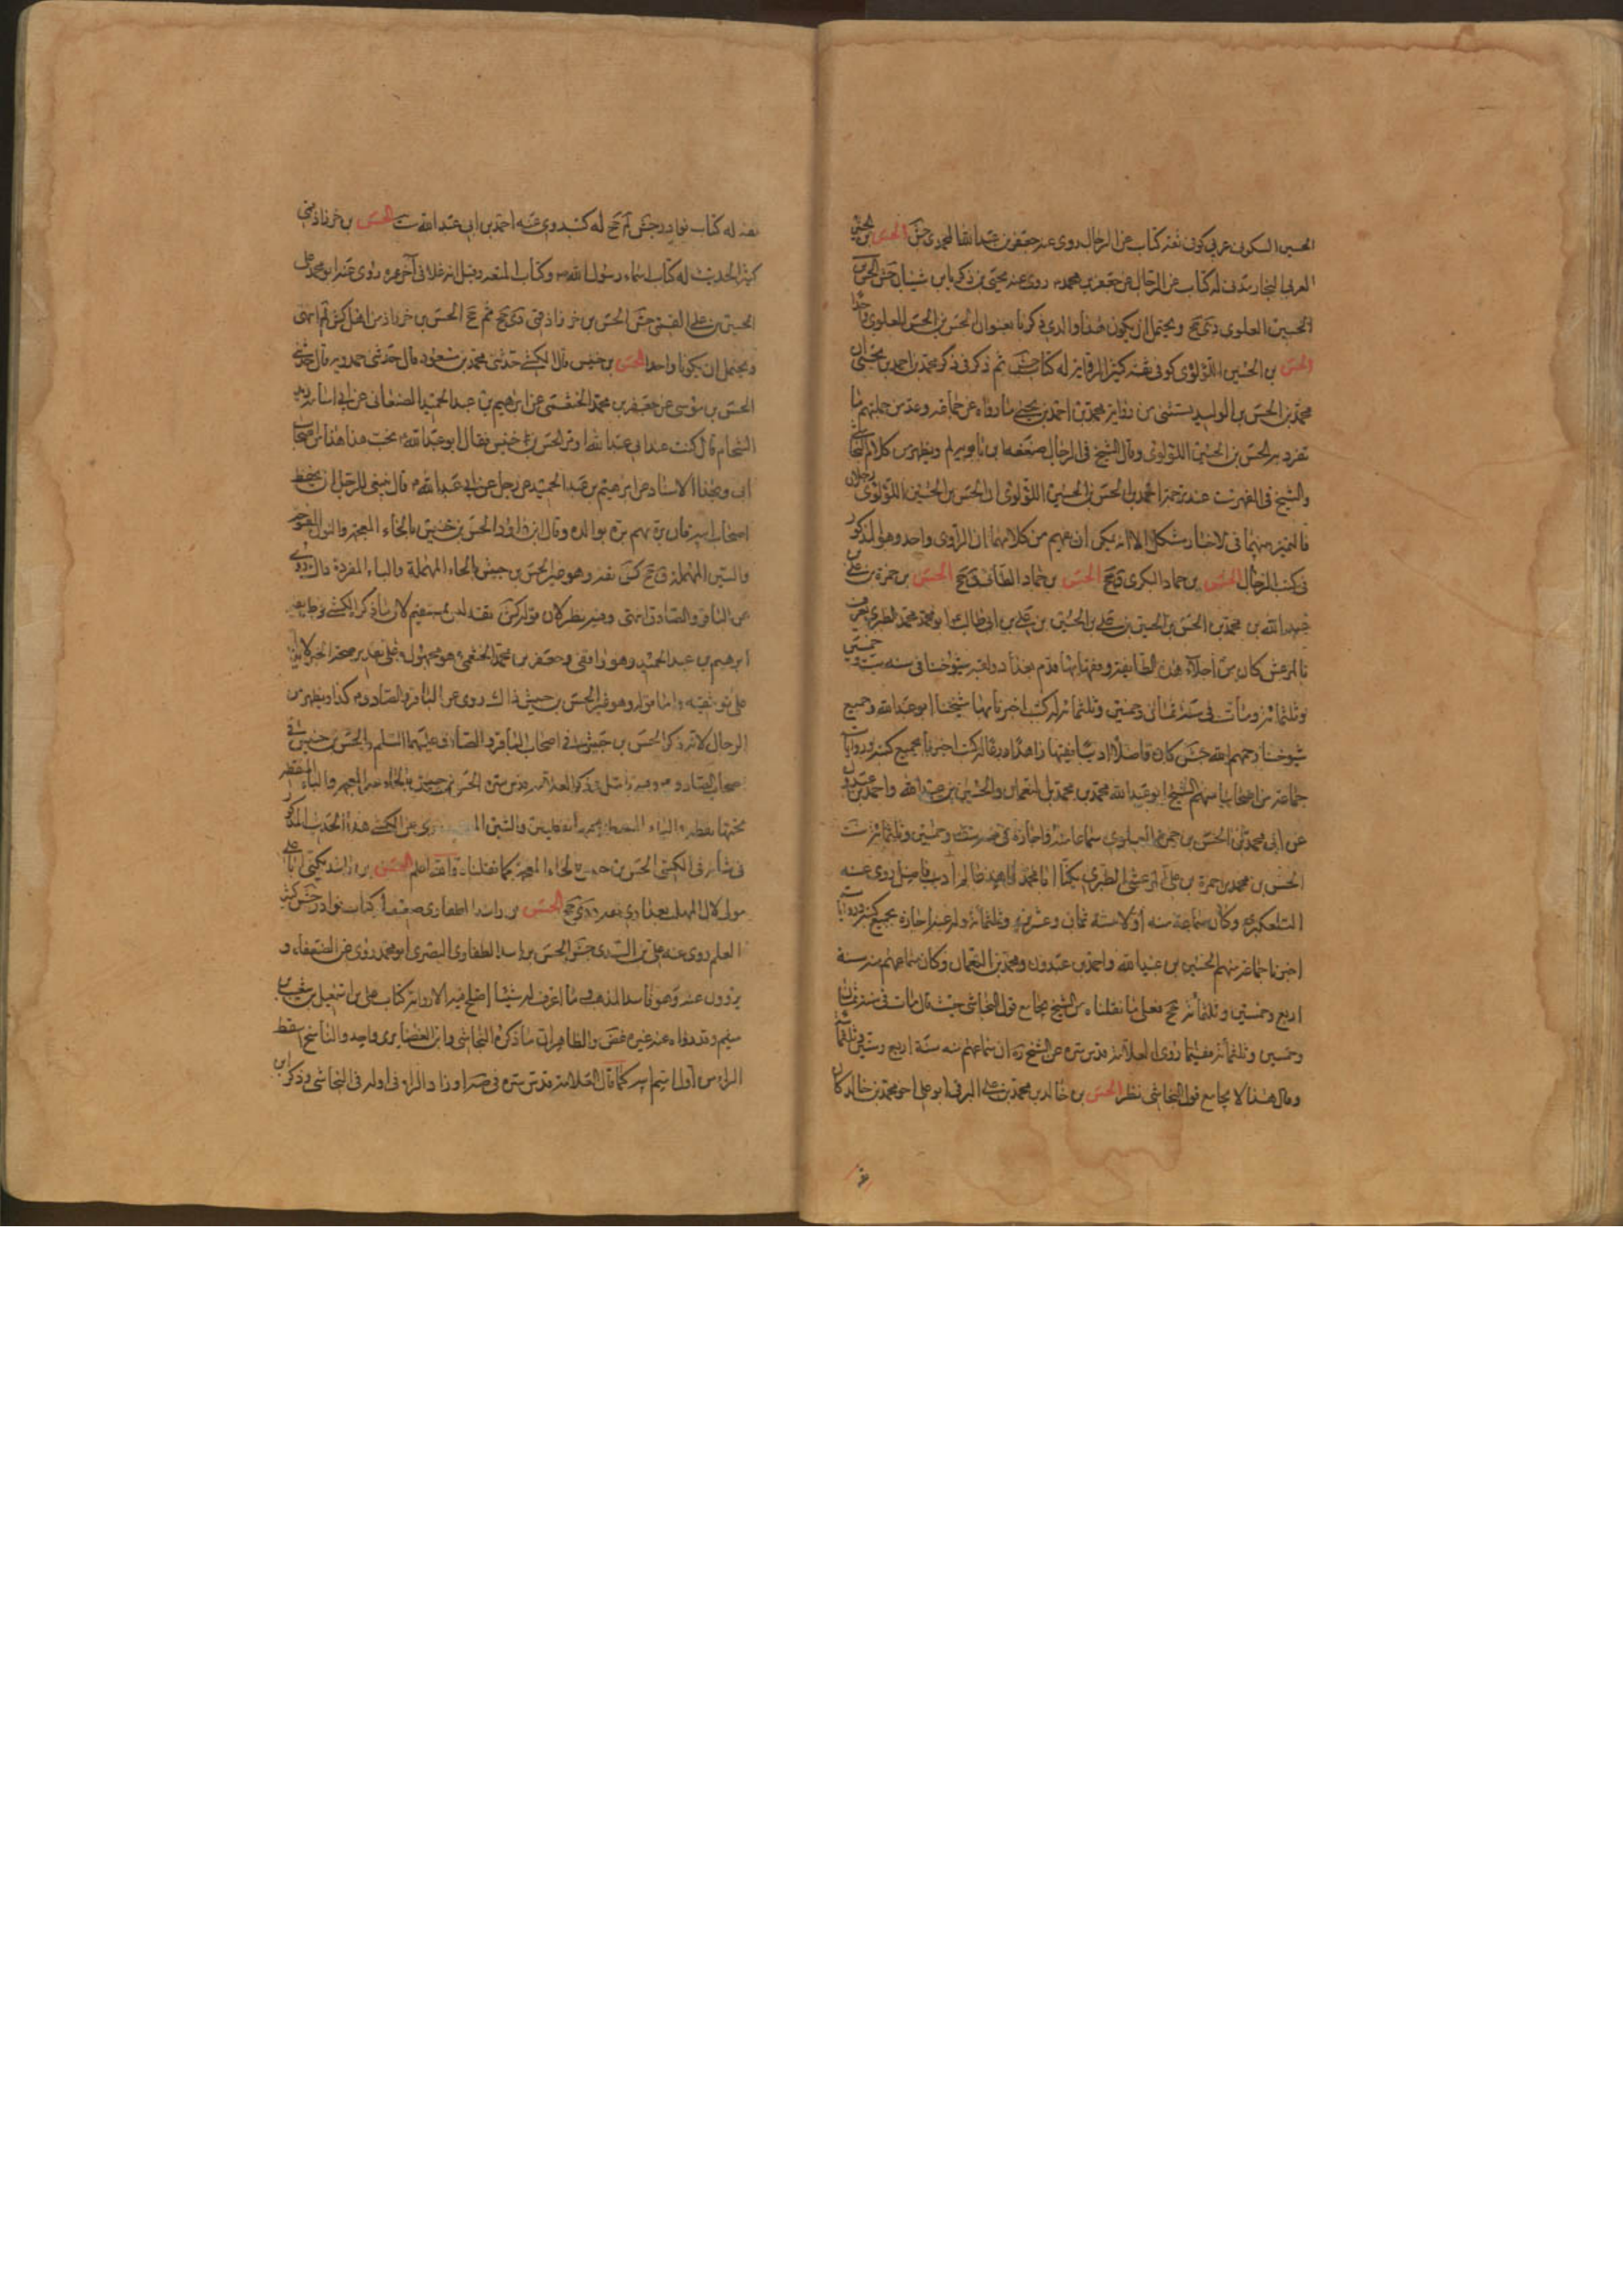 الحسين السكونى عربى كوفى ثقه كتاب عن الرجال روى عنه جعفر بن عبد الله المحمدى جش الحسن بن الحسين
العرنى النجار مدنى له كتاب عن الرجال عن جعفر بن محمد روى عنه يحيى بن زكريا بن شيبان جش الحسن بن
الحسين العلوى دى جخ ويحتمل ان يكون هذا والذى ذكرنا بعنوان الحسن بن الحسن العلوى واحدا
الحسن بن الحسين اللؤلؤى كوفى ثقه كثير الرواية له كتاب جش ثم ذكر فى ذكر محمد بن احمد بن يحيى ان
محمد بن الحسن بن الوليد يستثنى من رواية محمد بن احمد بن يحيى ما رواه عن جماعة وعد من جملتهم ما
تفرد به الحسن بن الحسين اللؤلؤى وقال الشيخ فى الرجال ضعفه ابن بابويه لم ويظهر من كلام النجاشى
والشيخ فى الفهرست عند ترجمة احمد بن الحسن بن الحسين اللؤلؤى ان الحسن بن الحسين اللؤلؤى رجلان
فالتميز بينهما فى الاخبار مشكل الا انه يمكن ان يفهم من كلامهما ان الراوى واحد وهو المذكور
فى كتب الرجال الحسن بن حماد البكرى ق جخ الحسن بن حماد الطائى ق جخ الحسن بن حمزة بن على بن
عبد الله بن محمد بن الحسن بن الحسين بن على بن الحسين بن على بن ابى طالب ابو محمد الطبرى يعرف
بالمرعش كان من اجلاء هذه الطائفة وفقهائها قدم بغداد ولقيه شيوخنا فى سنه ست وخمسين
وثلثمائة ومات فى سنة ثمان وخمسين وثلثمائة له كتب اخبرنا بها شيخنا ابو عبد الله وجميع
شيوخنا رحمهم الله جش كان فاضلا اديبا فقيها زاهدا ورعا له كتب اخبرنا بجميع كتبه ورواياته
جماعة من اصحابنا منهم الشيخ ابو عبد الله محمد بن محمد بن النعمان والحسين بن عبيد الله واحمد بن عبدون
عن ابى محمد الحسن بن حمزة العلوى سماعا منه واجازة فى سنة ست وخمسين وثلثمائة ست
الحسن بن محمد بن حمزة بن على المرعشى الطبرى يكنى ابا محمد زاهد عالم اديب فاضل روى عنه
التلعكبرى وكان سماعه منه اولا سنة ثمان وعشرين وثلثمائة وله منه اجازة بجميع كتبه ورواياته
اخبرنا جماعة منهم الحسين بن عبيد الله واحمد بن عبدون ومحمد بن النعمان وكان سماعهم منه سنة
اربع وخمسين وثلثمائة لم جخ فعلى ما نقلناه من الشيخ يجامع قول النجاشى حيث قال مات فى سنة ثمان
وخمسين وثلثمائة فقيما روى العلامة قدس سره عن الشيخ ره ان سماعهم منه سنة اربع وستين وثلثمائة
وقال هذا لا يجامع قول النجاشى نظر الحسن بن خالد بن محمد بن على البرقى ابو على اخو محمد بن خالد كان
ثقه له كتاب نوادر جش لم جخ له كتب روى عنه احمد بن ابى عبد الله ست الحسن بن خرزاذ قمى
كثير الحديث له كتاب اسماء رسول الله وكتاب المتعه وقيل انه غلا فى آخر عمره روى عنه ابو محمد على
الحسين بن على القمى جش الحسن بن خرزاذ قمى دى جخ ثم جخ الحسن بن خرزاذ من اهل كش لم انتهى
ويحتمل ان يكونا واحدا الحسن بن خنيس قال الكشى حدثنى محمد بن مسعود قال حدثنى حمدويه قال حدثنى
الحسن بن موسى عن جعفر بن محمد الخثعمى عن ابرهيم بن عبد الحميد الصنعانى عن ابى اسامة زيد
الشحام قال كنت عند ابى عبد الله اذ مر الحسن بن خنيس فقال ابو عبد الله تحب هذا هذا من اصحاب
ابى وبهذا الاسناد عن ابرهيم بن عبد الحميد عن رجل عن ابى عبد الله قال ينبغى للرجل ان يحفظ
اصحاب ابيه فان بره بهم بره بوالده وقال ابن داود الحسن بن خنيس بالخاء المعجمة والنون المفتوحة
والسين المهملة ق جخ كش ثقه وهو غير الحسن بن حبيش بالحاء المهملة والباء المفردة ذاك روى
عن الباقر والصادق انتهى وفيه نظر لان قوله كش ثقه ليس بمستقيم لان ما ذكره الكشى فى طريقه
ابرهيم بن عبد الحميد وهو واقفى وجعفر بن محمد الخثعمى وهو مجهول وعلى تقدير صحة الخبر لا يدل
على توثيقه واما قوله وهو غير الحسن بن حبيش ذاك روى عن الباقر والصادق كذا ويظهر من
الرجال لانه ذكر الحسن بن حبيش فى اصحاب الباقر والصادق عليهما السلم والحسن بن خنيس فى
اصحاب الصادق وفيه تأمل وذكر العلامة قدس سره الحسن بن خنيس بالخاء المعجمة والباء المنقطة
تحتها نقطة والياء والشين المعجمة روى عن الكشى هذا الحديث المذكور
فى شأنه وفى الكشى الحسن بن خنيس بالخاء المعجمة كما نقلناه والله اعلم الحسن بن راشد يكنى ابا على
مولى لآل المهلب بغدادى ثقه د دى جخ الحسن بن راشد الطفاوى ضعيف له كتاب نوادر حسن كثير
العلم روى عنه على بن السندى جش الحسن بن راشد الطفاوى البصرى ابو محمد روى عن الضعفاء و
يروون عنه وهو فاسد المذهب ما اعرف له شيئا اصلح فيه الا رواية كتاب على بن اسمعيل بن شعيب بن
ميثم وقد رواه عنه غيره غض والظاهر ان ما ذكره النجاشى وابن الغضايرى واحد والناسخ اسقط
الراء من اول اسم ابيه كما قال العلامة قدس سره فى صه او زاد الراء فى اوله فى النجاشى وذكر ابن